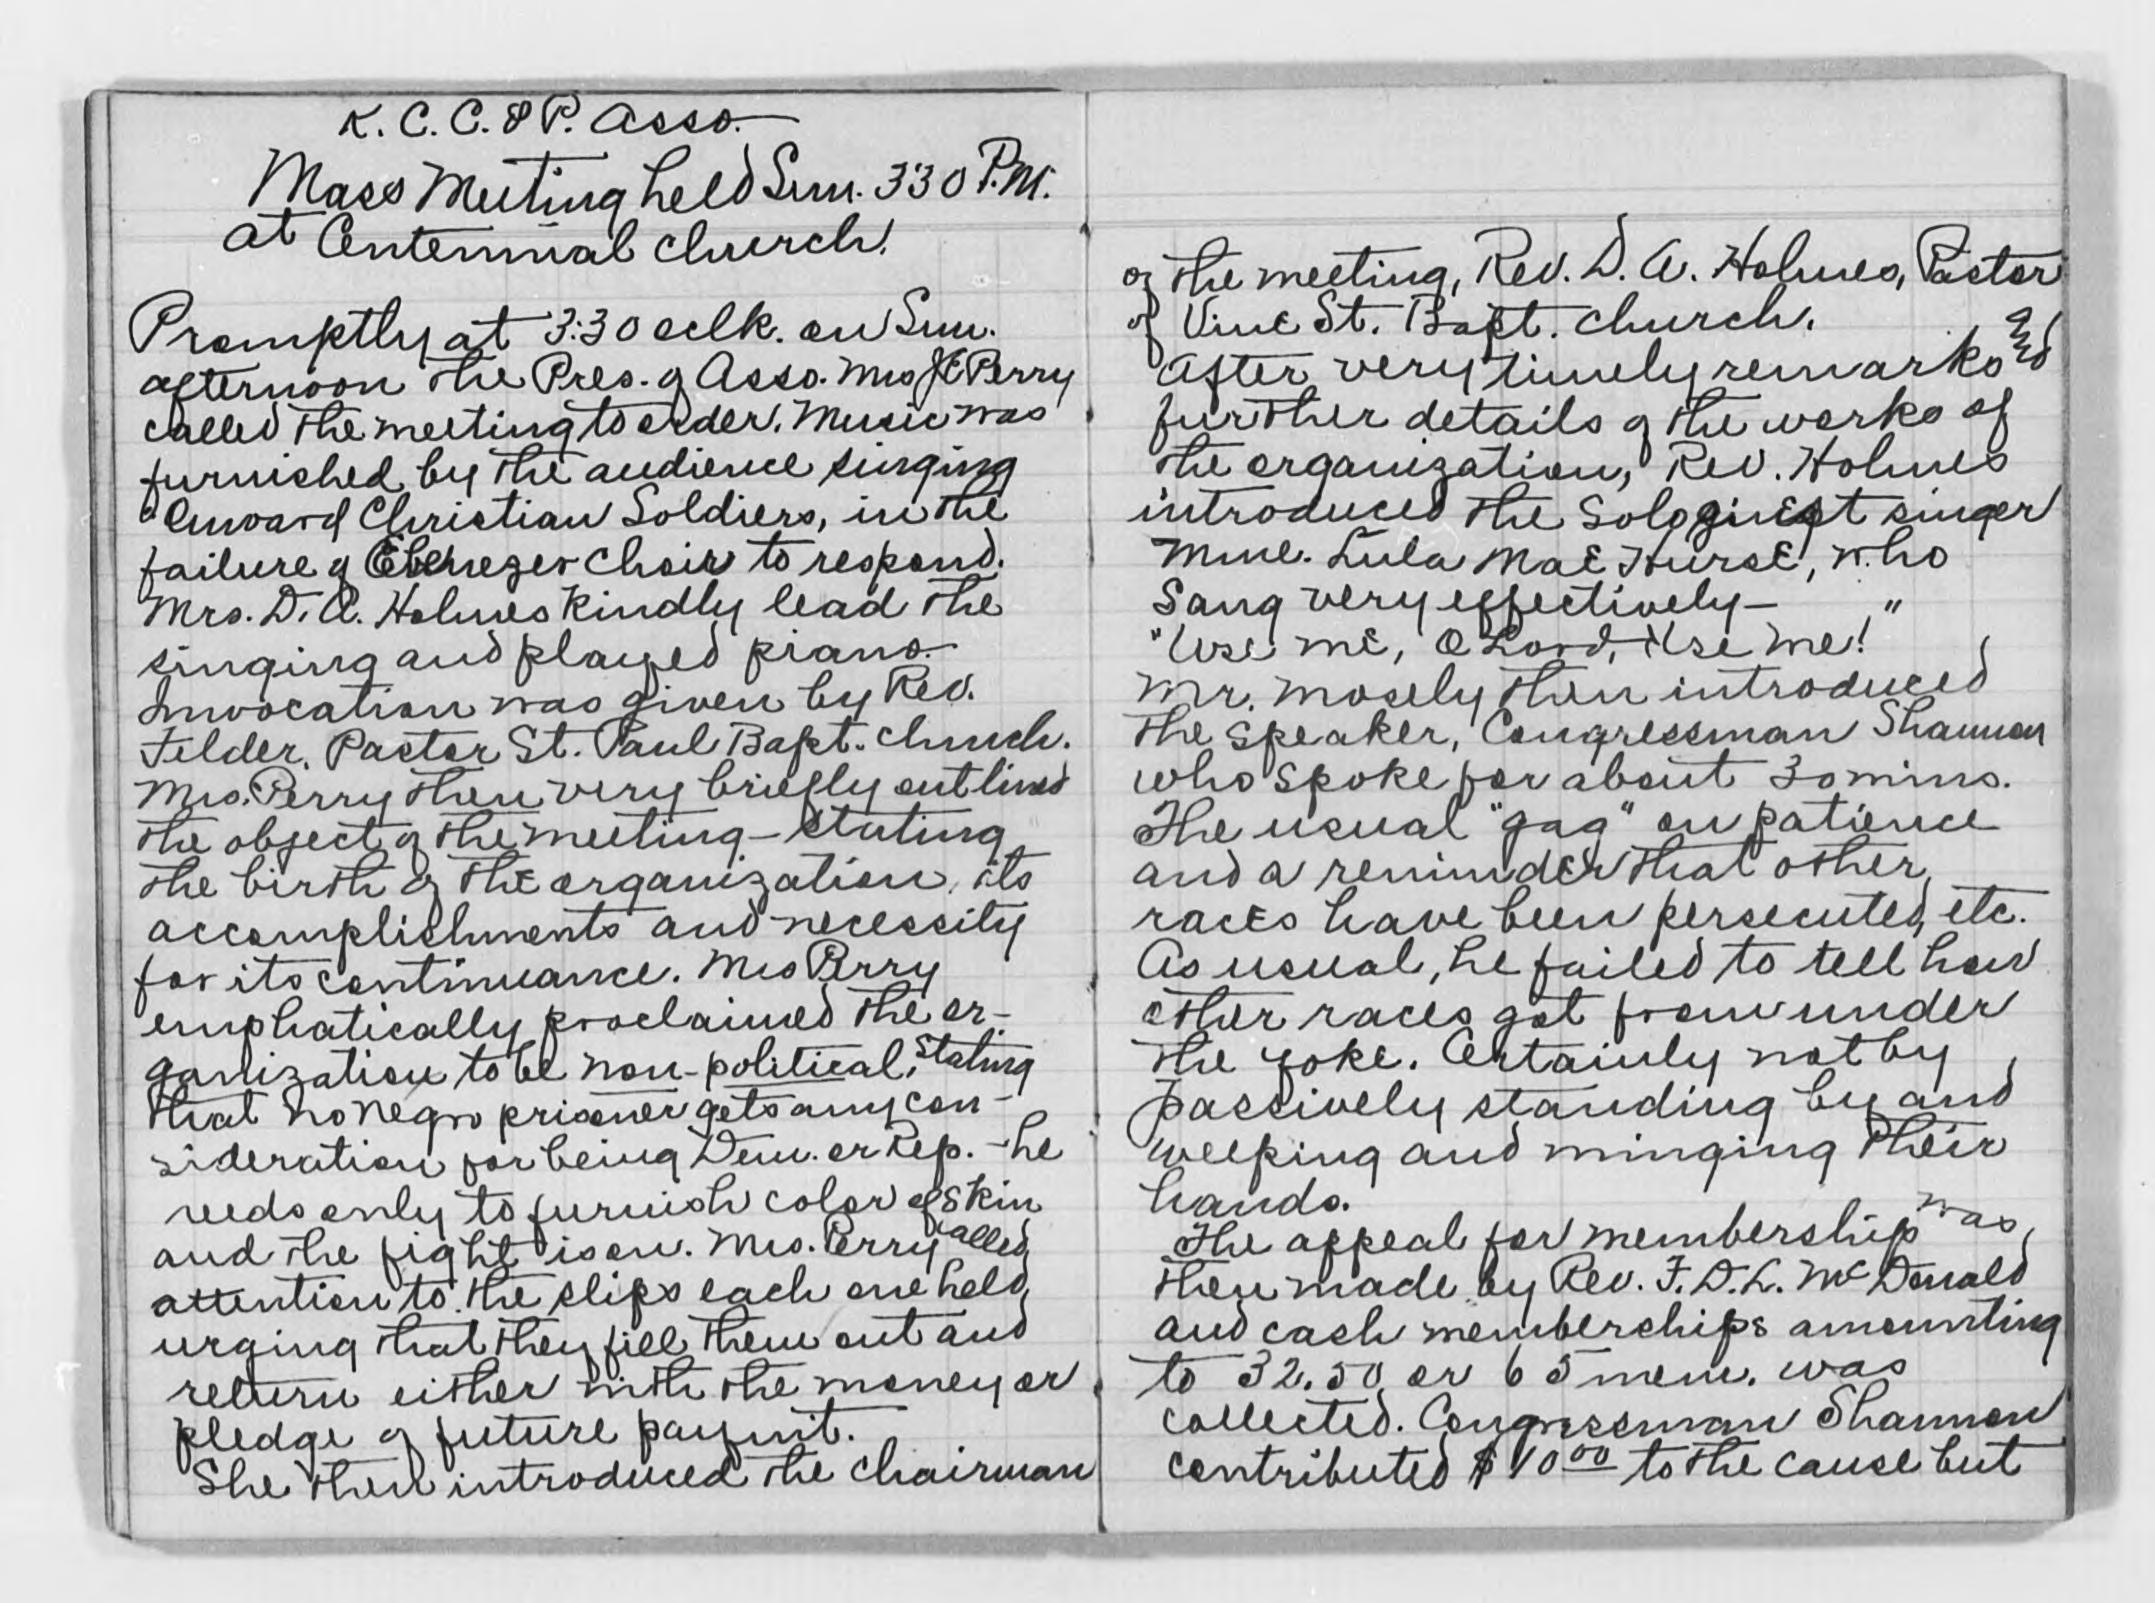 K. C. C. & P. Asso.
Mass Meeting held Sun. 3:30 P.M.
at Centennial church.
Promptly at 3:30 oclk. on Sun.
afternoon the Pres. of Asso. Mrs J E Perry
called the meeting to order. Music was
furnished by the audience singing
"Onward Christian Soldiers, in the
failure of Ebenezer Choir to respond.
Mrs. D. A. Holmes kindly lead the
singing and played piano.
Invocation was given by Rev.
Felder, Pastor St. Paul Bapt. church.
Mrs. Perry then very briefly outlined
the object of the meeting - stating
the birth of the organization, its
accomplishments and necessity
for its continuance. Mrs Perry
emphatically proclaimed the or-
ganization to be non-political, stating
that no negro prisoner gets any con-
sideration for being Dem. or Rep. - he
needs only to furnish color of skin
and the fight is on. Mrs. Perry called
attention to the slips each one held,
urging that they fill them out and
return either with the money or
pledge of future paymt.
She then introduced the chairman
of the meeting, Rev. D. A. Holmes, Pastor
of Vine St. Bapt. church.
After very timely remarks and
further details of the works of
the organization, Rev. Holmes
introduced the singer
Mme. Lula Mae Hurse, who
sang very effectively -
"Use me, O Lord, Use me!"
Mr. Mosely then introduced
the speaker, Congressman Shannon
who spoke for about 30 mins.
The usual "gag" on patience
and a reminder that other
races have been persecuted, etc.
As usual, he failed to tell how
other races got from under
the yoke. Certainly not by
passively standing by and
weeping and minging their
hands.
The appeal for membership was
then made by Rev. F. D. L. McDonald
and cash memberships amounting
to 32.50 or 65 mem. was
collected. Congressman Shannon
contributed $10.00 to the cause but